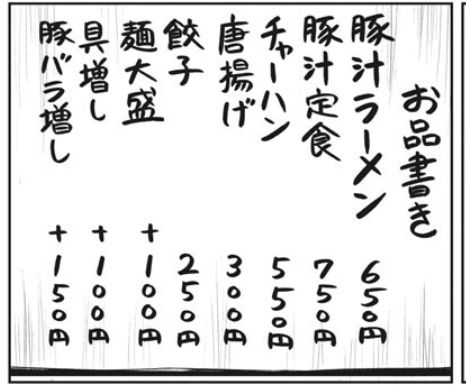 お品書き
豚汁ラーメン 650円
豚汁定食 750円
チャーハン 550円
唐揚げ 300円
餃子 250円
麺大盛 +100円
具増し +100円
豚バラ増し +150円